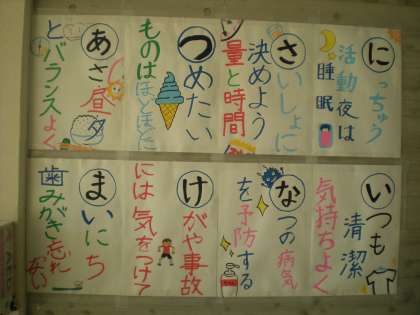 にっちゅう
活動夜は
睡眠
さいしょに
決めよう
量と時間
つめたい
ものはほどほどに
あさ昼夕
とバランスよく
いつも
清潔
気持ちよく
なつの病気
を予防する
けがや事故
には気をつけて
まいにち
歯みがき忘れ
ない